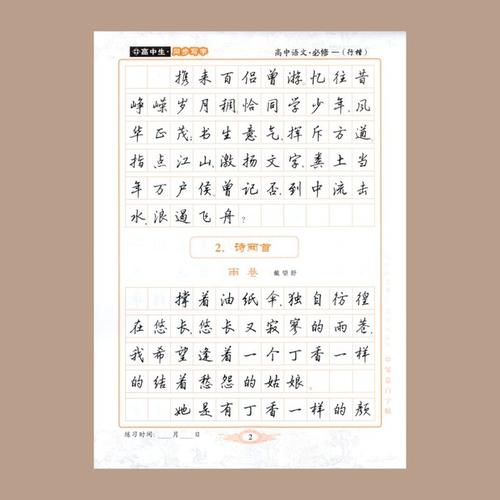 高中生·同步写字
高中语文·必修一(行楷)
携来百侣曾游忆往昔
峥嵘岁月稠恰同学少年,风
华正茂;书生意气,挥斥方遒。
指点江山,激扬文字,粪土当
年万户侯。曾记否,到中流击
水,浪遏飞舟?
2. 诗两首
雨巷 戴望舒
撑着油纸伞,独自彷徨
在悠长,悠长又寂寥的雨巷,
我希望逢着一个丁香一样
的结着愁怨的姑娘。
她是有丁香一样的颜
练习时间: 月 日
2